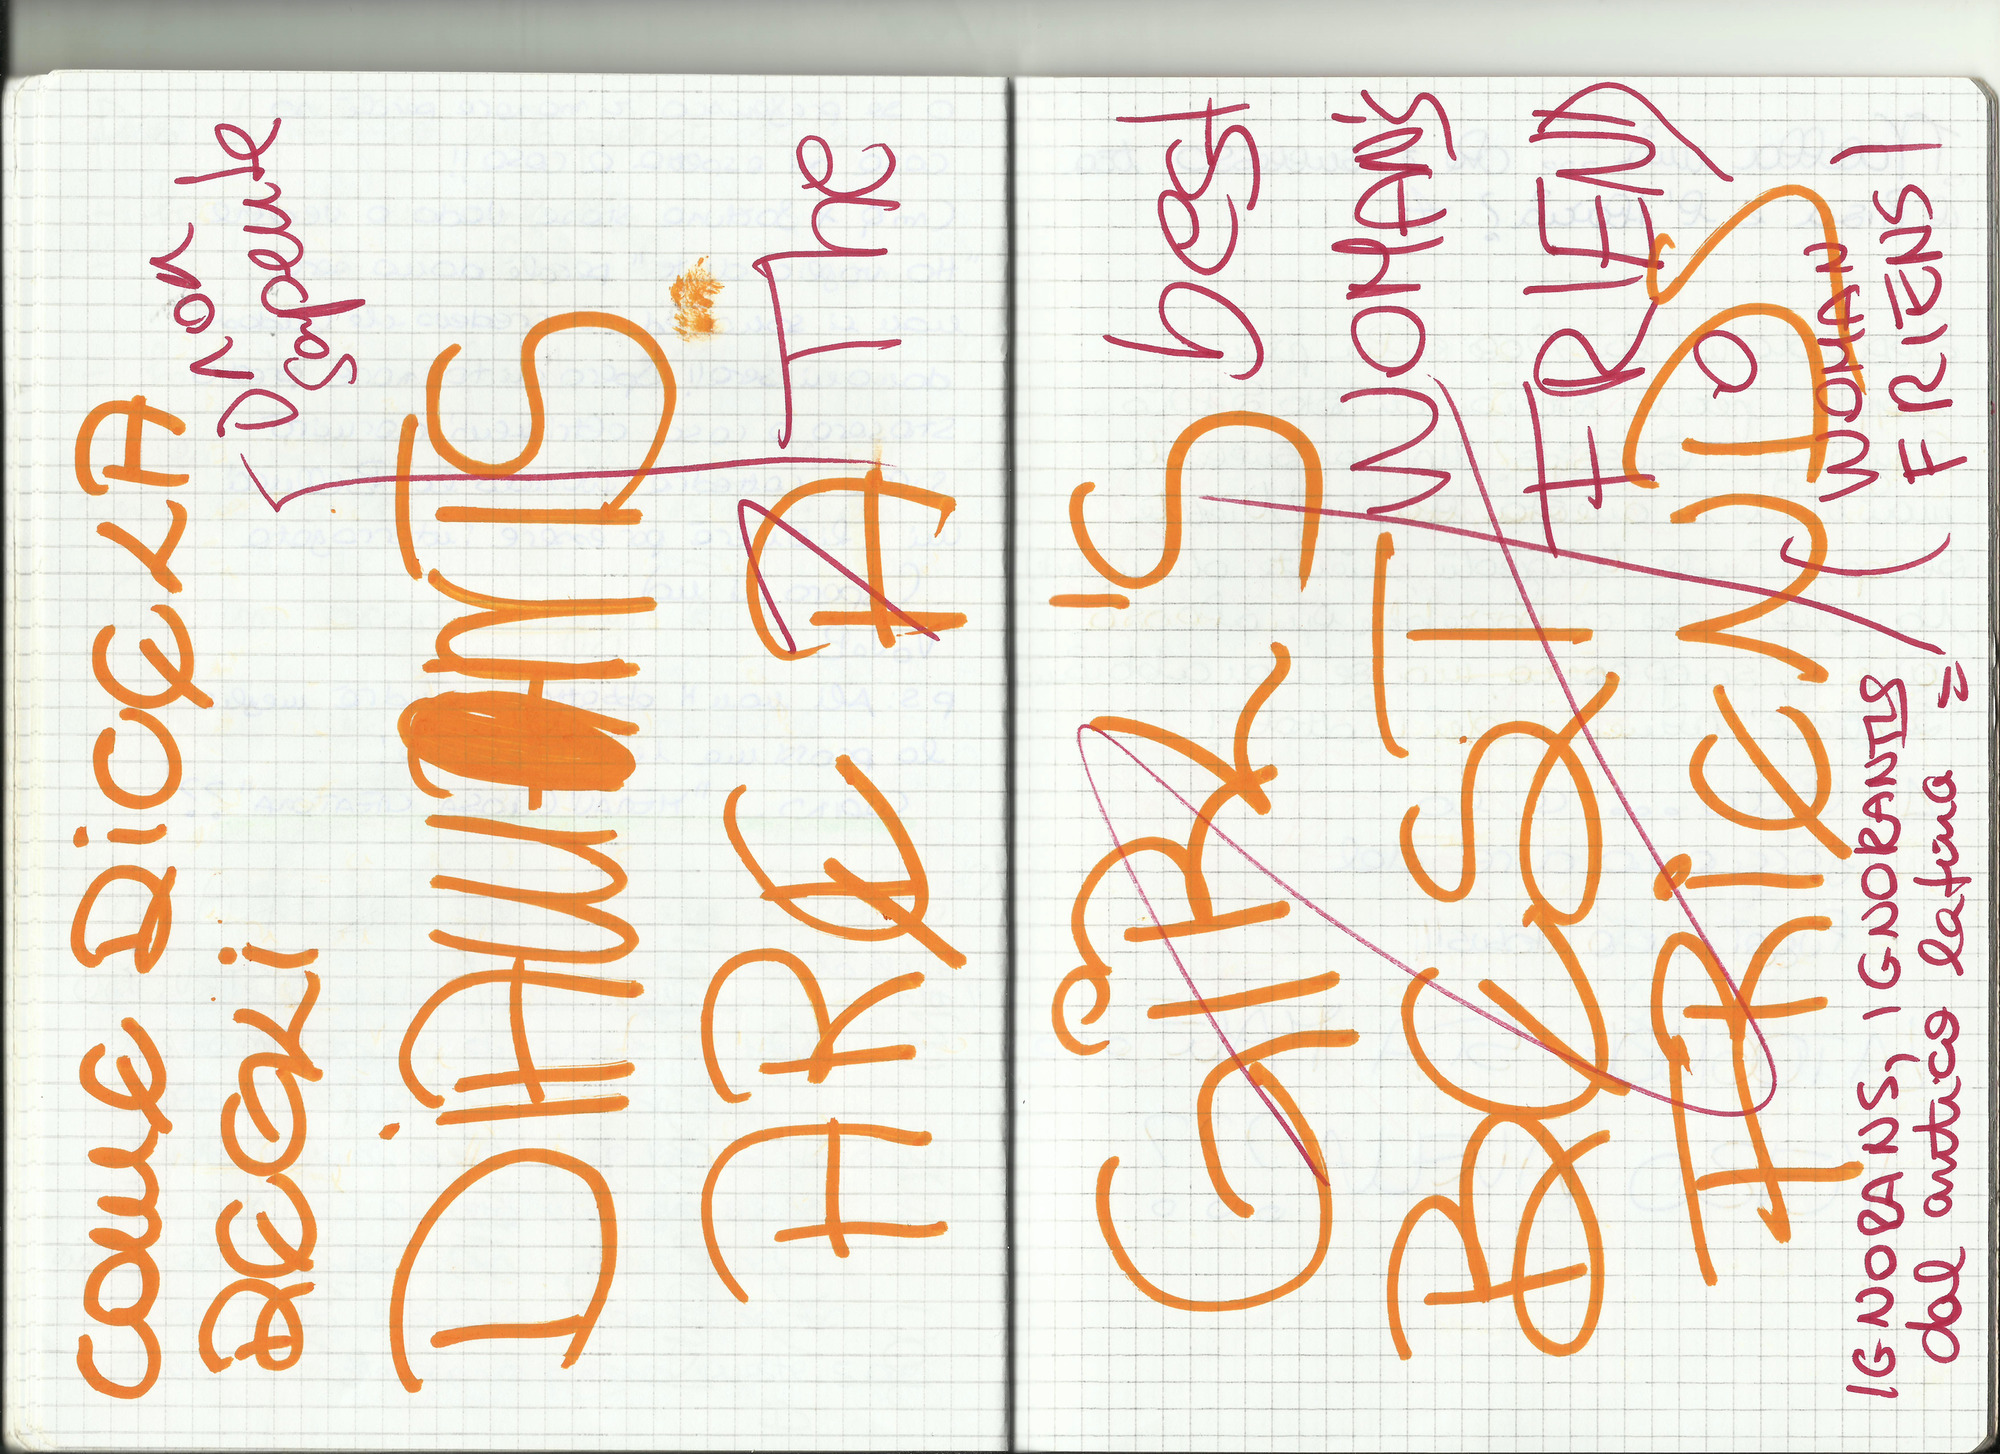 COME DiCEVA
BECKi
non
DiAMONTS
ARE A The
GiRL'S best
BEST WOMAN'S
FRIEND
FRiEND O
IGNORANS, IGNORANTIS (WOMAN
dal antico latino = FRIENS)